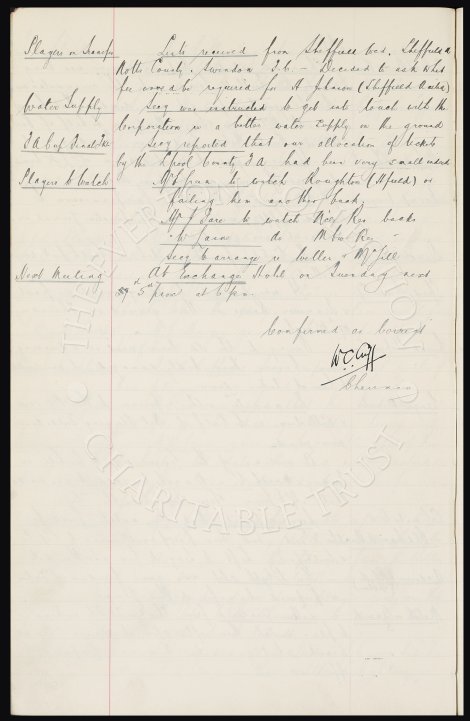 Players on Transfer Lists received from Sheffield Wed. Sheffield U
Notts County. Swindon T. Etc - Decided to ask what
fee would be required for H Johnson (Sheffield United)
Water Supply Secy was instructed to get into touch with the
Corporation re a better water supply on the ground
F A Cup Final Tkts Secy reported that our allocation of tickets
by the Lpool County F A had been very small indeed
Players to Watch to watch Roughton (Hfield) or
failing him another back.
Mr to watch Res backs
" W do Res "
Secy to arrange re &
Next Meeting At Exchange Hotel on Tuesday next
5th prox at 6 pm.
Confirmed as Correct
W.C. Cuff
Chairman
THE EVERTON COLLECTION
CHARITABLE TRUST